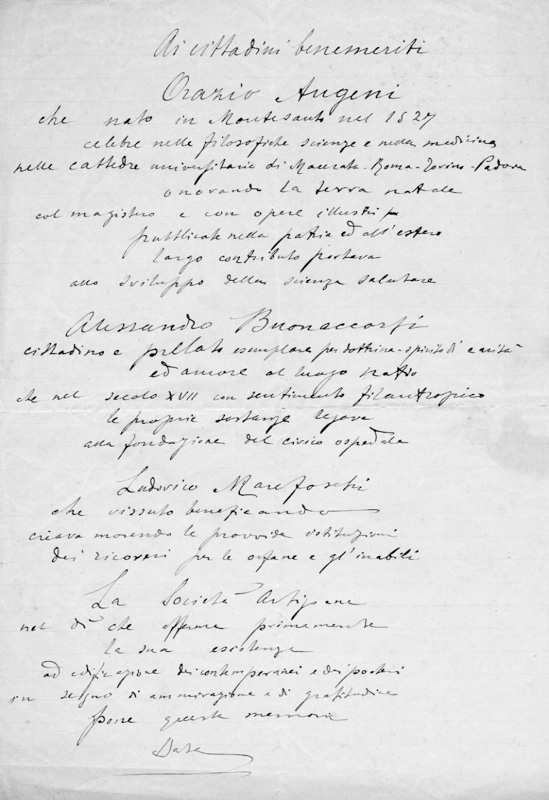 Ai cittadini benemeriti
Orazio Augeni
che nato in Montesanto nel 1527
celebre nelle filosofiche scienze e nella medicina
nelle cattedre universitarie di Macerata-Roma-Torino-Padova
onorando la terra natale
col magistero e con opere illustri
pubblicate nella patria ed all'estero
largo contributo portava
allo sviluppo della scienza salutare
Alessandro Buonaccorsi
cittadino e prelato esemplare per dottrina-spirito di carità
ed amore al luogo natio
che nel secolo XVII con sentimento filantropico
le proprie sostanze legava
alla fondazione del civico ospedale
Ludovico Marefoschi
che vissuto beneficando
creava morendo le provvide istituzioni
dei ricoveri per le orfane e gl'inabili
La Società Artigiana
nel dì che afferma primamente
la sua esistenza
ad edificazione dei contemporanei e dei posteri
in segno di ammirazione e di gratitudine
pone questa memoria
Data